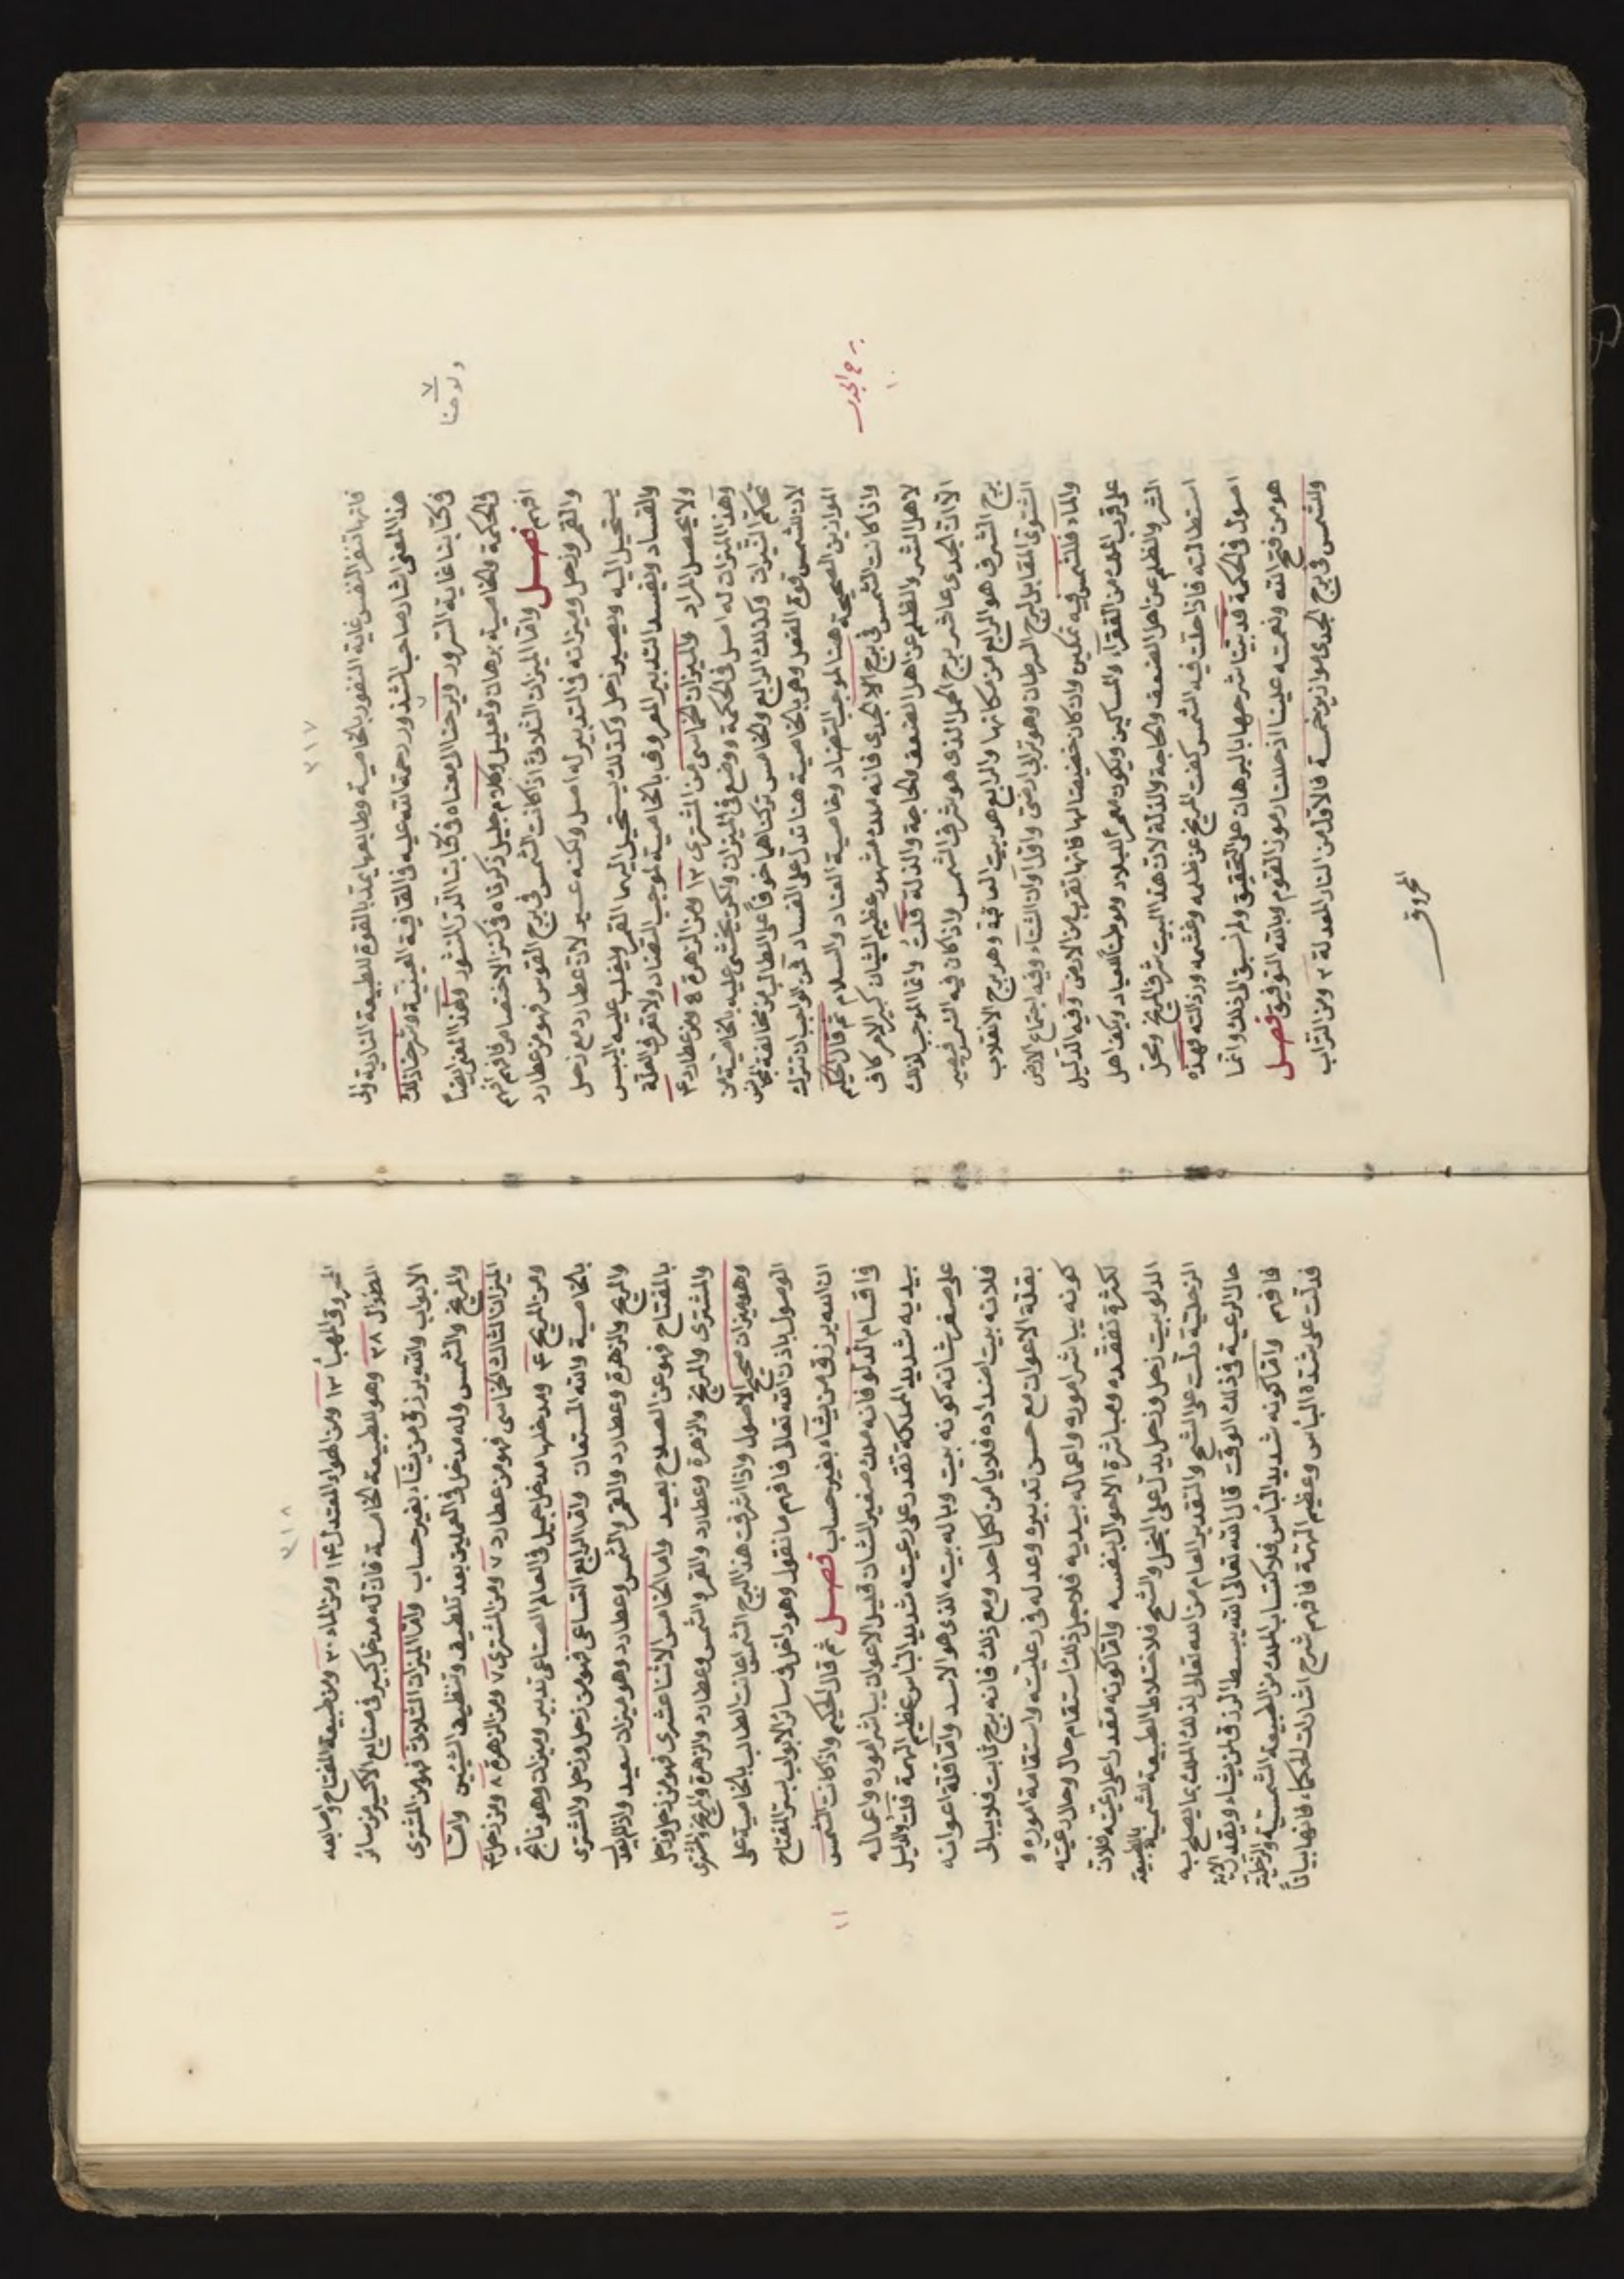 ٣١٧
فانها تنفر النفس غاية النفور بالخاصية وطابعها يمتد بالقوم للطبيعة النارية والى
هذا المعنى اشار صاحب الشذور رحمة الله عليه فى القافية العينية وشرحنا ذلك
فى كتابنا غاية السرور ولوحنا لا معناه فى كتابنا الدر المنثور وهذا المعنى ايضاً
ولوحنا
٧
فى الحكمة والخاصية برهان وتعليل وكلام جليل ذكرناه فى كنز الاختصاص فافهم
افهم فصل واما الميزان الثلاثى اذا كانت الشمس فى برج القوس فهو من عطارد
والقمر وزحل وميزانه فى التدبير له اصل ولكنه عسير لان عطارد مع زحل
يستحيل اليه ويصير زحل وكذلك يستحيل اليهما القمر ويغلب عليه اليبس
والفساد ويفسد التدبير المعروف بالخاصية لموجب التضاد ولا تعرف العلة
ولا يحصل المراد والميزان الخماسى من المشترى ١٢ ومن الزهرة ٤ ومن عطارد ٣
وهذا الميزان له اصل فى الحكمة ووضع فى الميزان ولكن يخشى عليه بالخاصية من
تحكم النيران وكذلك الرابع والخامس تركناها خوفاً على الطالب من مخالفة
لان للشمس قوة الفعل وهى بالخاصية هنا تدل على الفساد فمن الواجب ان نترك
الموازين الصحيحة هنا لموجب التضاد وخاصية العناد والسلام ثم قال الحكيم
برج الجدى
١٠
واذا كانت الشمس فى برج الجدى فانه ملك مشهور عظيم الشان كبير الامر كاف
لاهل الشر والظلم عن اهل الضعف والحاجة والذلة قلت وانما الموجب لذلك
الا ان الجدى عاشر برج الحمل الذى هو شرف الشمس واذا كان فيه الشمس فيصير
برج الشرف هو الرابع من مكانها والرابع هو بيت العاقبة وهو برج الانقلاب
الشتوى المقابل لبرج السرطان وهو ترابى ارضى واول اوان الشتاء وفيه اجتماع الارض
والماء فللشمس فيه تمكين وان كان حضيضا لها فانها تقرب من الارض وفيه الدليل
على قرب الملك من الفقراء والمساكين ويكون معمر البلاد وموطنا للعباد ويكف اهل
الشر والظلم عن اهل الضعف والحاجة والذلة لان هذا البيت شرف المريخ ومحل
استطالته فاذا حلت فيه الشمس كفت المريخ عن ظلمه وغشمه ورذالته فهذه
اصول فى الحكمة قد بينا شرحها بالبرهان على التحقيق ولم نسبق الى ذلك وانما
هو من فتح الله ونعمته علينا اذ حللنا رموز القوم وبالله التوفيق فصل
وللشمس فى برج الجدى موازين خمسة فالاول من النار المعدلة ٢ ومن التراب
المحروق
٣١٨
المحروق المهبأ ١٢ ومن الهواء المعتدل ١٤ ومن الماء ٣٠ ومن طبيعة المفتاح او سابعه
الطوال ٢٨ وهو للطبيعة الخامسة فان له مدخل كبير فى صنايع الاكسير من سائر
الابواب والله يرزق من يشاء بغير حساب واما الميزان الثلاثى فهو من المشترى
والمريخ والشمس وله مدخل فى العملين بعد تلطيف وتنظيف الشيئين واما
الميزان الثالث الخماسى فهو من عطارد ٧ ومن المشترى ٧ ومن الزهرة ٨ ومن زحل ٣
ومن المريخ ٣ ومدخلها مدخل جميل فى العالم الصناعى تدبير وميزان وهو ناتج
بالخاصية والله المستعان واما الرابع التساعى فهو من زحل وزحل والمشترى
والمريخ والزهرة وعطارد والقمر والشمس وعطارد وهو ميزان سعيد
بالمفتاح فهو عن الصلاح بعيد واما الخامس الاثنا عشرى فهو من زحل وزحل
والمشترى والمريخ والزهرة وعطارد والقمر والشمس وعطارد والزهرة والمريخ والمشترى
وهو ميزان صحيح الاصول واذا اشرقت هذا البرج الشمس اعانت الطالب بالخاصية على
الوصول باذن الله تعالى فافهم ما نقول وهو داخل فى سائر الابواب بستر المفتاح
ان الله يرزق من يشاء بغير حساب فصل ثم قال الحكيم واذا كانت الشمس
١١
فى اقسام الدلو فانه ملك صغير الشان قليل الاعوان يباشر اموره واعماله
بيديه شديد المملكة تقدر على رعيته شديد الباس عظيم الهمة قلت والدليل
على صغر شانه كونه بيت وباله بيته الذى هو الاسد واما قلة اعوانه
فلانه بيت اضداده فلا يأمن لكل احد ومع ذلك فانه برج ثابت فلا يبالى
بقلة الاعوان مع حسن تدبيره وعدله فى رعيته واستقامة اموره و
كونه يباشر اموره واعماله بيديه فلاجل ذلك استقام حال وحال رعيته
لكثرة تفقده ومباشرة الاحوال بنفسه واما كونه مقدرا على رعيته فلان
الدلو بيت زحل وزحل يدل على البخل والشح فلاختلاط الطبيعة الشمسية بالطبيعة
الزحلية دلت على الشح والتقدير العام من الله تعالى لذلك الملك بما يصلح به
حال الرعية فى ذلك الوقت قال الله تعالى الله يبسط الرزق لمن يشاء ويقدر الاية
فافهم واما كونه شديد البأس فلاكتساب الملك من الطبيعة الشمسية والزحلية
فدلت على شدة البأس وعظيم الهمة فافهم شرح اشارات الحكماء فانها بياناً